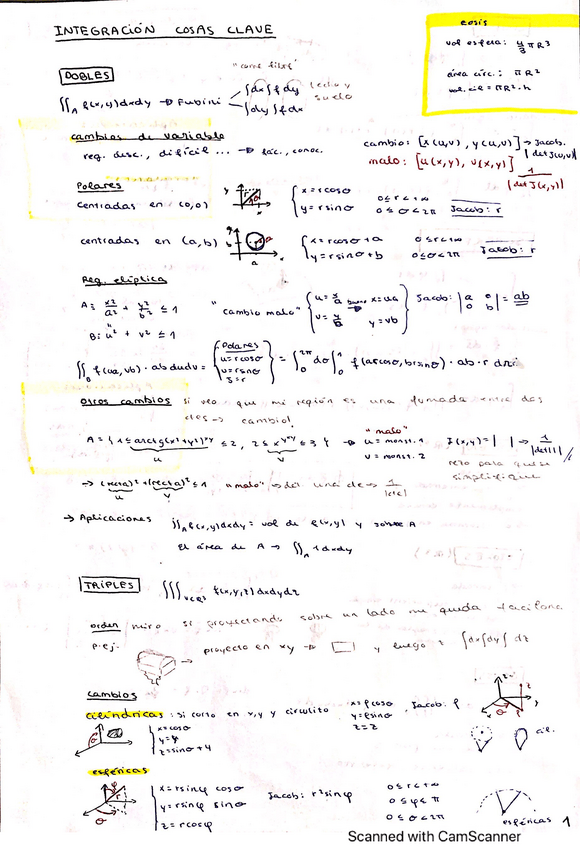 INTEGRACIÓN COSAS CLAVE
cosis
vol esfera: 4/3 πR³
área circ.: πR²
vol. cil = πR²·h
DOBLES
"come files"
∬_A f(x,y)dxdy → Fubini
∫dx∫f dy
∫dy∫f dx
techo y
suelo
cambios de variable
reg. desc., difícil ... → fác., conoc.
cambio: [x(u,v), y(u,v)] → Jacob. |det J(u,v)|
malo: [u(x,y), v(x,y)] 1/|det J(x,y)|
Polares
centradas en (0,0)
x = r cosθ
y = r sinθ
0 ≤ r < +∞
0 ≤ θ < 2π
Jacob: r
centradas en (a,b)
x = r cosθ + a
y = r sinθ + b
0 ≤ r < +∞
0 ≤ θ < 2π
Jacob: r
Reg. elíptica
A: x²/a² + y²/b² ≤ 1
B: u² + v² ≤ 1
"cambio malo"
u = x/a
v = y/b
x = ua
y = vb
Jacob: |a 0 0 b| = ab
∬_B f(ua, vb) · ab dudv =
Polares
u = r cosθ
v = r sinθ
J = r
= ∫₀^2π dθ ∫₀^1 f(ar cosθ, br sinθ) · ab · r dr
Otros cambios si veo que mi región es una fumada entre dos
→ cambio!
A = { 1 ≤ arctg(x²+y²)^xy ≤ 2, 2 ≤ x^x+y ≤ 3 } →
u
v
"malo"
u = monst. 1
v = monst. 2
J(x,y) = | | → 1/|det|
rezo para que se
simplifique
→ (recta)² + (recta)² ≤ 1
u
v
"malo" → det una de → 1/|cte|
→ Aplicaciones
∬_A f(x,y)dxdy = vol de f(x,y) y sobre A
El área de A → ∬_A 1 dxdy
TRIPLES
∭_V⊂R³ f(x,y,z) dxdydz
orden miro si proyectando sobre un lado me queda
p.ej.
→ proyecto en xy → y luego z ∫dx∫dy∫ dz
cambios
cilíndricas: si corto en x,y y circulito
x = ρcosθ
y = ρsinθ
z = z
, Jacob: ρ
x = cosθ
y = y
z = sinθ + 4
cil.
esféricas
x = r sinφ cosθ
y = r sinφ sinθ
z = r cosφ
Jacob: r² sinφ
0 ≤ r < +∞
0 ≤ φ ≤ π
0 ≤ θ < 2π
esféricas
1
Scanned with CamScanner